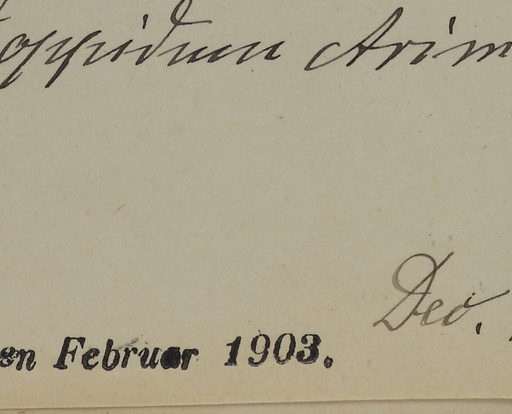 oppidum Arim
Deo.
en Februar 1903.